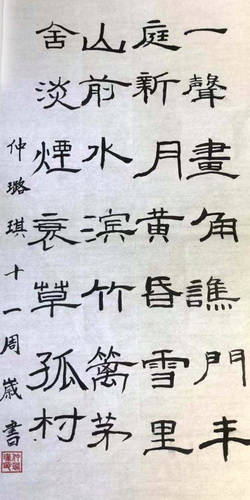 一聲畫角譙門半
庭新月黄昏雪里
山前水滨竹籬茅
舍淡煙衰草孤村
仲璐琪十一周歲書